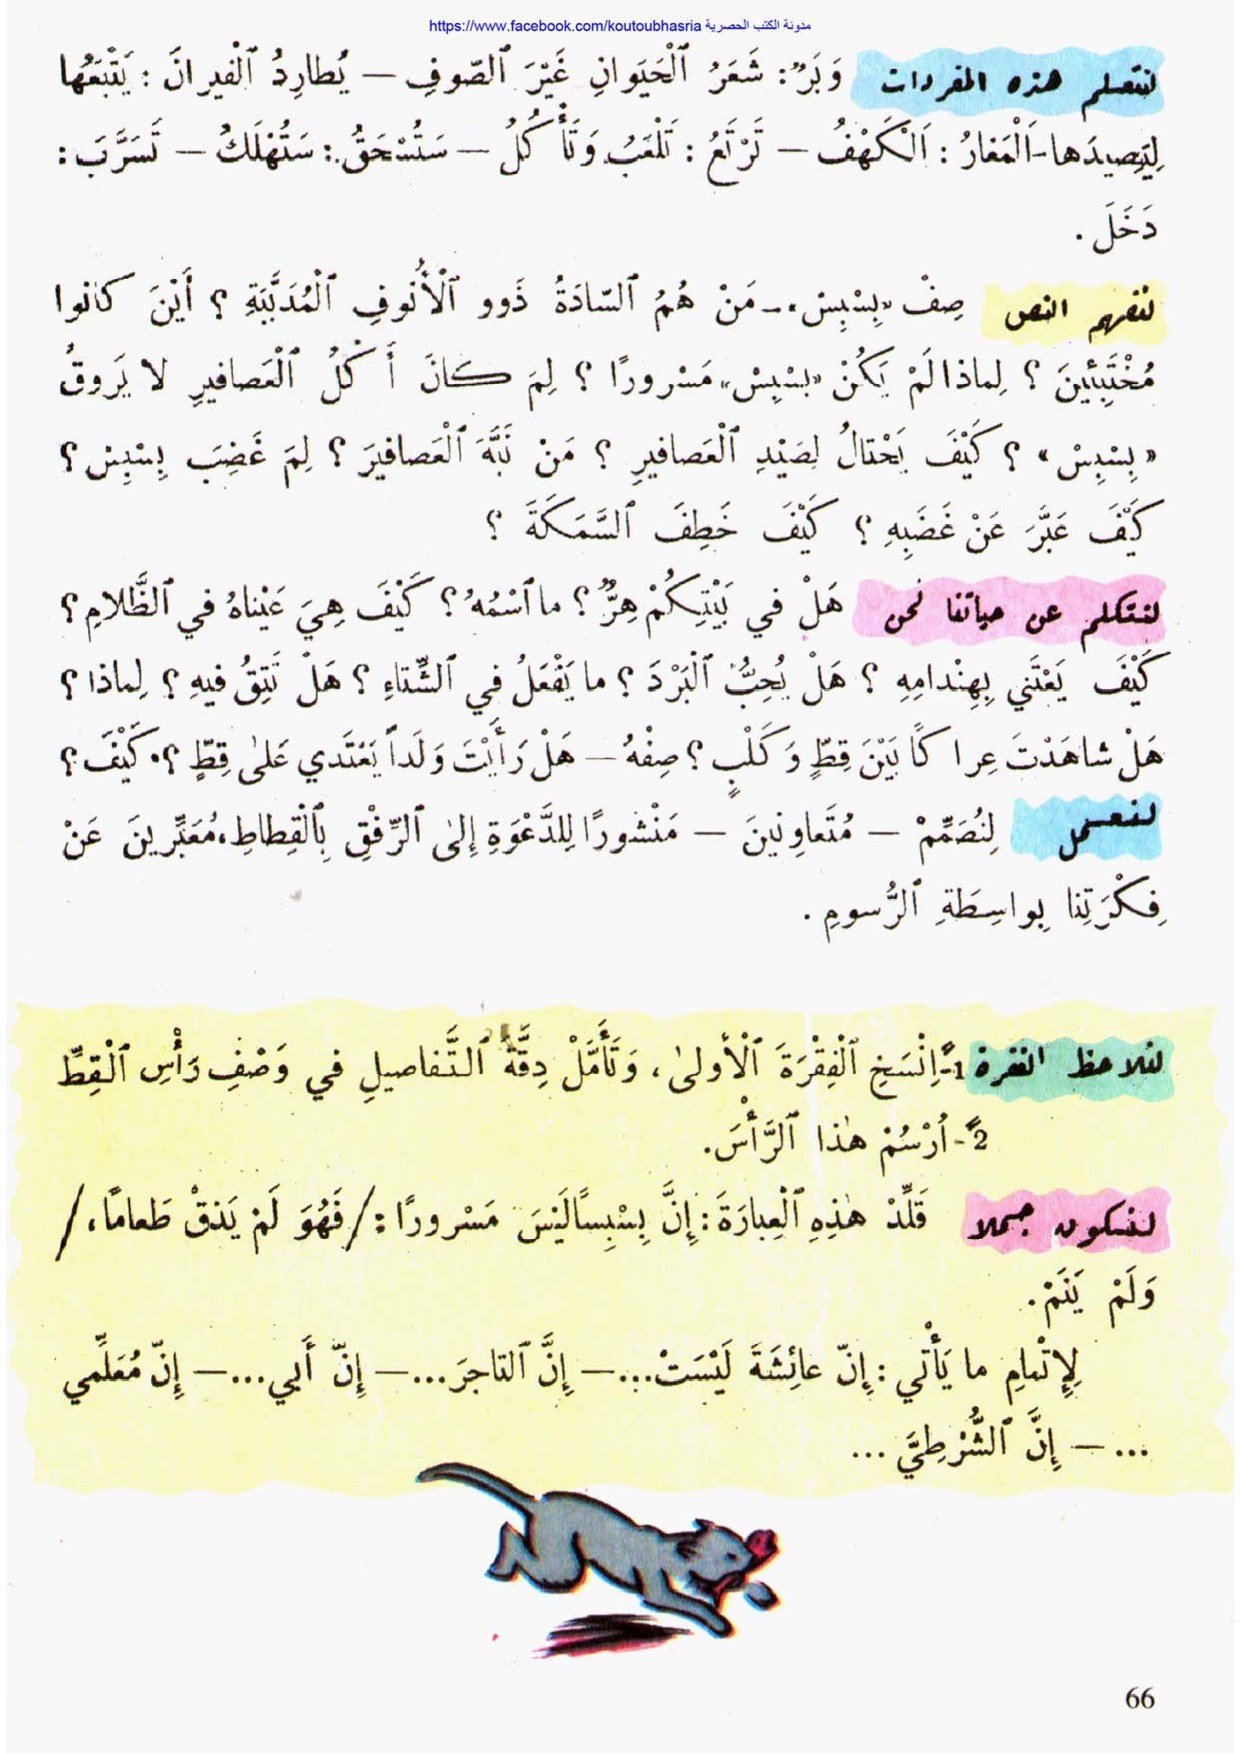 مدونة الكتب الحصرية https://www.facebook.com/koutoubhasria
لنتعلم هذه المفردات وَبَرٌ: شَعَرُ ٱلْحَيَوانِ غَيْرَ ٱلصّوفِ — يُطارِدُ ٱلْفيرانَ : يَتْبَعُها
لِيَصيدَها-اَلْمَغارُ : اَلْكَهْفُ — تَرْتَعُ : تَلْعَبُ وَتَأْكُلُ — سَتُسْحَقُ : سَتُهْلَكُ — تَسَرَّبَ :
دَخَلَ .
لنفهم النص صِفْ «بِسْبِسْ» - مَنْ هُمُ ٱلسّادَةُ ذَوو ٱلْأُنوفِ ٱلْمُدَبَّبَةِ ؟ أَيْنَ كانوا
مُخْتَبِئينَ ؟ لِماذا لَمْ يَكُنْ «بِسْبِسْ» مَسْرورًا ؟ لِمَ كانَ أَكْلُ ٱلْعَصافيرِ لا يَروقُ
«بِسْبِسْ» ؟ كَيْفَ يَحْتالُ لِصَيْدِ ٱلْعَصافيرِ ؟ مَنْ نَبَّهَ ٱلْعَصافيرَ ؟ لِمَ غَضِبَ بِسْبِسْ ؟
كَيْفَ عَبَّرَ عَنْ غَضَبِهِ ؟ كَيْفَ خَطِفَ ٱلسَّمَكَةَ ؟
لنتكلم عن حياتنا نحن هَلْ في بَيْتِكُمْ هِرٌّ ؟ ما ٱسْمُهُ ؟ كَيْفَ هِيَ عَيْناهُ في ٱلظَّلامِ ؟
كَيْفَ يَعْتَني بِهِنْدامِهِ ؟ هَلْ يُحِبُّ ٱلْبَرْدَ ؟ ما يَفْعَلُ في ٱلشِّتاءِ ؟ هَلْ تَثِقُ فيهِ ؟ لِماذا ؟
هَلْ شاهَدْتَ عِراكًا بَيْنَ قِطٍّ وَكَلْبٍ ؟ صِفْهُ — هَلْ رَأَيْتَ وَلَداً يَعْتَدي عَلى قِطٍّ ؟ كَيْفَ ؟
لنعمل لِنُصَمِّمْ — مُتَعاوِنينَ — مَنْشورًا لِلدَّعْوَةِ إِلى ٱلرِّفْقِ بِٱلْقِطاطِ، مُعَبِّرينَ عَنْ
فِكْرَتِنا بِواسِطَةِ ٱلرُّسومِ .
لنلاحظ الفقرة 1ً- اِنْسَخِ ٱلْفِقْرَةَ ٱلْأولى، وَتَأَمَّلْ دِقَّةَ ٱلتَّفاصيلِ في وَصْفِ رَأْسِ ٱلْقِطِّ
2ً- اُرْسُمْ هٰذا ٱلرَّأْسَ.
لنكون جملا قَلِّدْ هٰذِهِ ٱلْعِبارَةَ : إِنَّ بِسْبِسًا لَيْسَ مَسْرورًا : / فَهُوَ لَمْ يَذقْ طَعامًا، /
وَلَمْ يَنَمْ.
لِإِتْمامِ ما يَأْتي : إِنّ عائِشَةَ لَيْسَتْ... — إِنَّ ٱلتاجرَ... — إِنّ أَبي... — إِنّ مُعَلِّمي
... — إِنَّ ٱلشُّرْطِيَّ ...
66